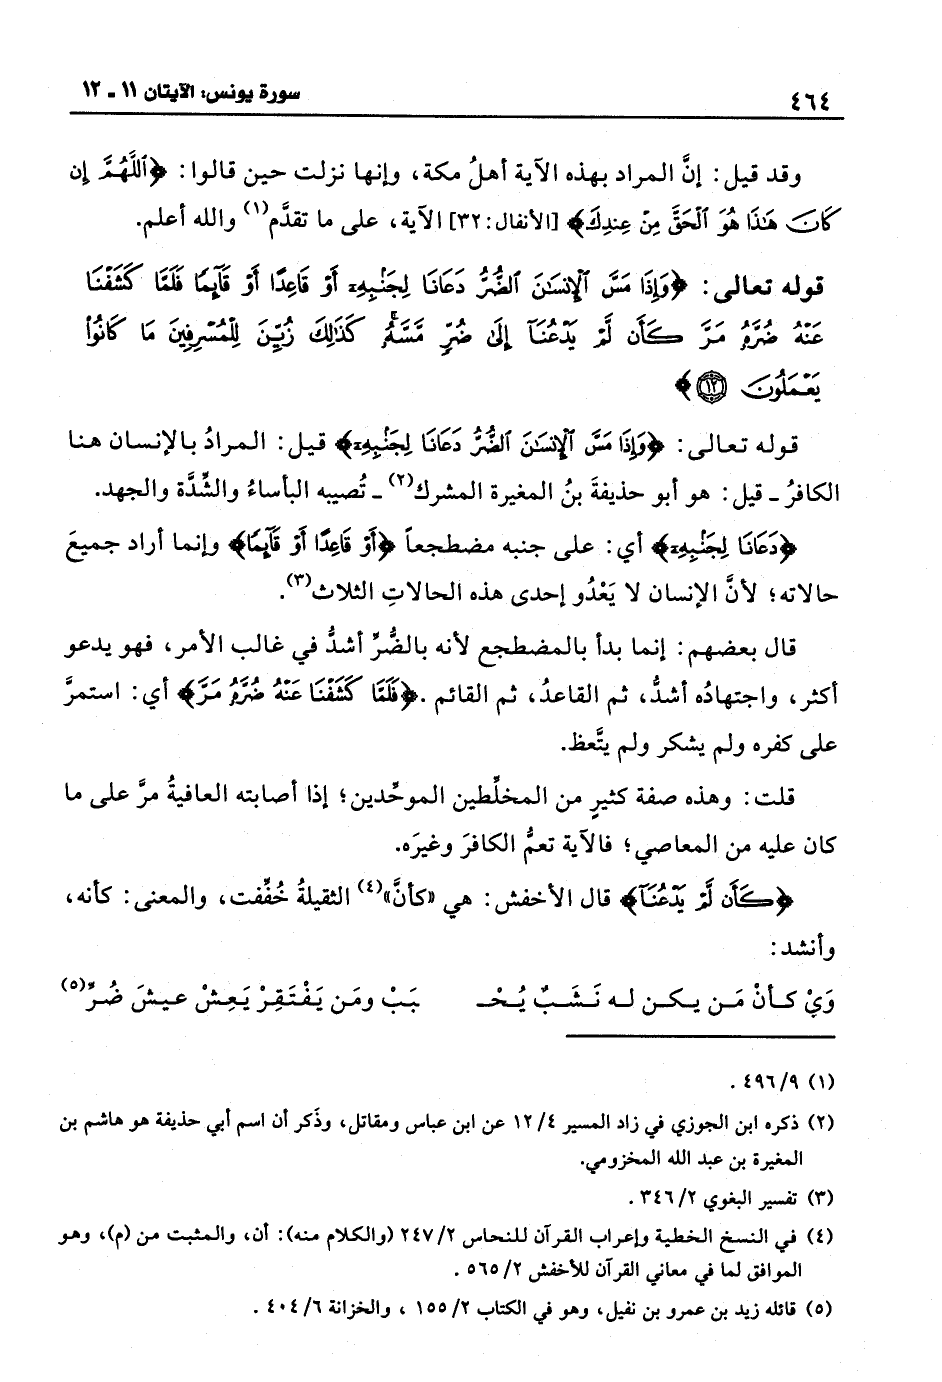 ٤٦٤
سورة يونس: الآيتان ١١ - ١٢
وقد قيل: إنَّ المراد بهذه الآية أهلُ مكة، وإنها نزلت حين قالوا: ﴿ٱللَّهُمَّ إِن
كَانَ هَٰذَا هُوَ ٱلْحَقَّ مِنْ عِندِكَ﴾ [الأنفال: ٣٢] الآية، على ما تقدَّم(١) والله أعلم.
قوله تعالى: ﴿وَإِذَا مَسَّ ٱلْإِنسَٰنَ ٱلضُّرُّ دَعَانَا لِجَنۢبِهِۦٓ أَوْ قَاعِدًا أَوْ قَآئِمًا فَلَمَّا كَشَفْنَا
عَنْهُ ضُرَّهُۥ مَرَّ كَأَن لَّمْ يَدْعُنَآ إِلَىٰ ضُرٍّ مَّسَّهُۥ كَذَٰلِكَ زُيِّنَ لِلْمُسْرِفِينَ مَا كَانُوا۟
يَعْمَلُونَ ١٢﴾
قوله تعالى: ﴿وَإِذَا مَسَّ ٱلْإِنسَٰنَ ٱلضُّرُّ دَعَانَا لِجَنۢبِهِۦٓ﴾ قيل: المرادُ بالإنسان هنا
الكافرُ ـ قيل: هو أبو حذيفةَ بنُ المغيرة المشرك(٢) ـ تُصيبه البأساءُ والشِّدَّة والجهد.
﴿دَعَانَا لِجَنۢبِهِۦٓ﴾ أي: على جنبه مضطجعاً ﴿أَوْ قَاعِدًا أَوْ قَآئِمًا﴾ وإنما أراد جميعَ
حالاته؛ لأنَّ الإنسان لا يَعْدُو إحدى هذه الحالاتِ الثلاث(٣).
قال بعضهم: إنما بدأ بالمضطجع لأنه بالضُّرِّ أشدُّ في غالب الأمر، فهو يدعو
أكثر، واجتهادُه أشدُّ، ثم القاعدُ، ثم القائم. ﴿فَلَمَّا كَشَفْنَا عَنْهُ ضُرَّهُۥ مَرَّ﴾ أي: استمرَّ
على كفره ولم يشكر ولم يتَّعظ.
قلت: وهذه صفة كثيرٍ من المخلِّطين الموحِّدين؛ إذا أصابته العافيةُ مرَّ على ما
كان عليه من المعاصي؛ فالآية تعمُّ الكافرَ وغيرَه.
﴿كَأَن لَّمْ يَدْعُنَآ﴾ قال الأخفش: هي «كأنَّ»(٤) الثقيلةُ خُفِّفت، والمعنى: كأنه،
وأنشد:
وَيْ كأنْ مَن يكن له نَشَبٌ يُحْـ بَبْ ومَن يَفْتَقِرْ يَعِشْ عيشَ ضُرِّ(٥)
(١) ٤٩٦/٩ .
(٢) ذكره ابن الجوزي في زاد المسير ١٢/٤ عن ابن عباس ومقاتل، وذَكر أن اسم أبي حذيفة هو هاشم بن
المغيرة بن عبد الله المخزومي.
(٣) تفسير البغوي ٣٤٦/٢ .
(٤) في النسخ الخطية وإعراب القرآن للنحاس ٢٤٧/٢ (والكلام منه): أن، والمثبت من (م)، وهو
الموافق لما في معاني القرآن للأخفش ٥٦٥/٢ .
(٥) قائله زيد بن عمرو بن نفيل، وهو في الكتاب ١٥٥/٢ ، والخزانة ٤٠٤/٦ .